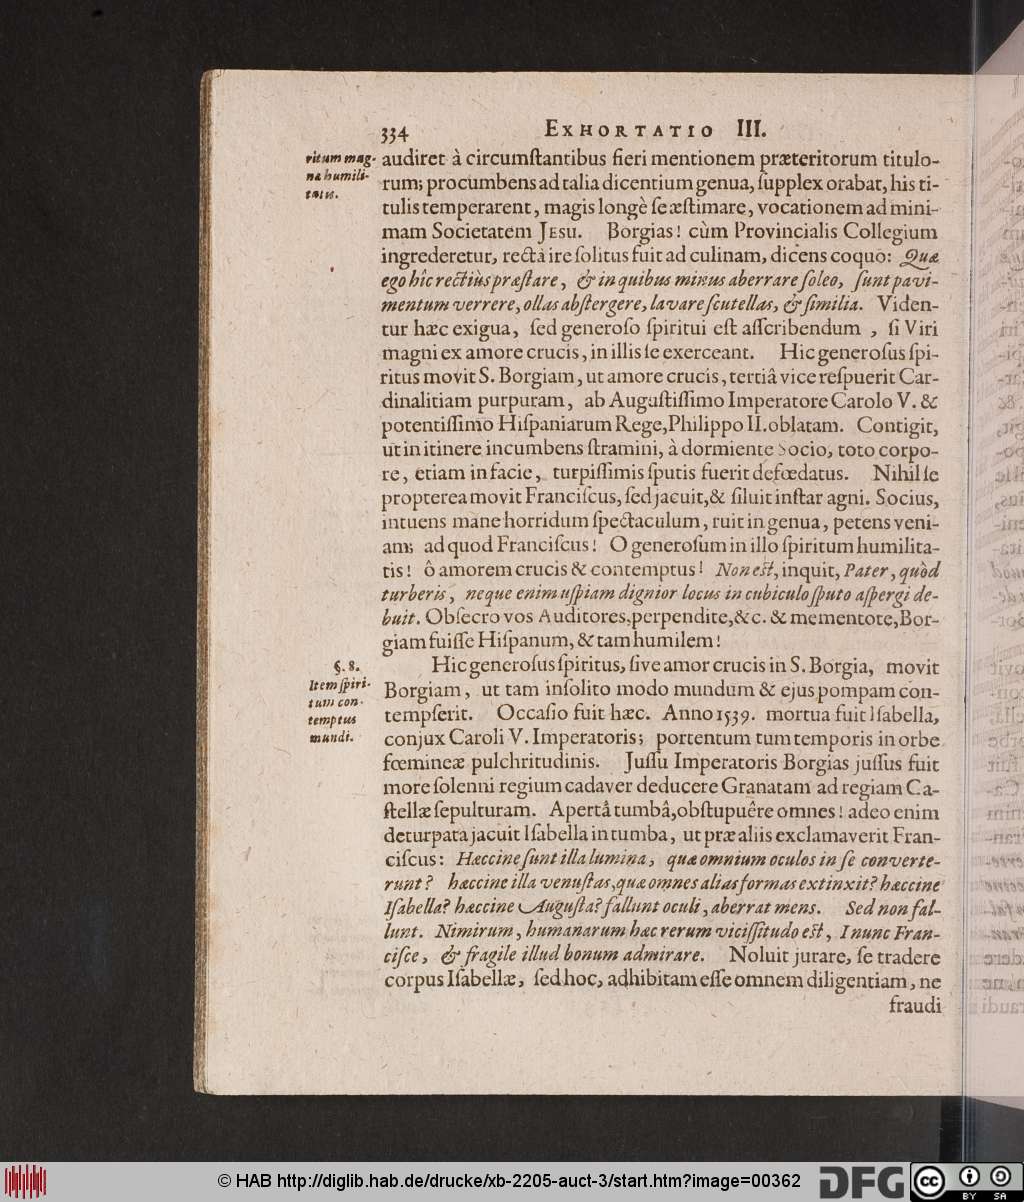 334 EXHORTATIO III.
ritum mag-
na humili-
tatis.
audiret à circumſtantibus fieri mentionem præteritorum titulo-
rum; procumbens ad talia dicentium genua, ſupplex orabat, his ti-
tulis temperarent, magis longè ſe æſtimare, vocationem ad mini-
mam Societatem JESU. Borgias! cùm Provincialis Collegium
ingrederetur, rectà ire ſolitus fuit ad culinam, dicens coquo: Quæ
ego hîc rectiùs præſtare, & in quibus minus aberrare ſoleo, ſunt pavi-
mentum verrere, ollas abſtergere, lavare ſcutellas, & ſimilia. Viden-
tur hæc exigua, ſed generoſo ſpiritui eſt aſſcribendum, ſi Viri
magni ex amore crucis, in illis ſe exerceant. Hic generoſus ſpi-
ritus movit S. Borgiam, ut amore crucis, tertiâ vice reſpuerit Car-
dinalitiam purpuram, ab Auguſtiſſimo Imperatore Carolo V. &
potentiſſimo Hiſpaniarum Rege, Philippo II. oblatam. Contigit,
ut in itinere incumbens ſtramini, à dormiente Socio, toto corpo-
re, etiam in facie, turpiſſimis ſputis fuerit defœdatus. Nihil ſe
propterea movit Franciſcus, ſed jacuit, & ſiluit inſtar agni. Socius,
intuens mane horridum ſpectaculum, ruit in genua, petens veni-
am; ad quod Franciſcus! O generoſum in illo ſpiritum humilita-
tis! ô amorem crucis & contemptus! Non eſt, inquit, Pater, quòd
turberis, neque enim uſpiam dignior locus in cubiculo ſputo aſpergi de-
buit. Obſecro vos Auditores, perpendite, &c. & mementote, Bor-
giam fuiſſe Hiſpanum, & tam humilem!
§. 8.
Item ſpiri-
tum con-
temptus
mundi.
Hic generoſus ſpiritus, ſive amor crucis in S. Borgia, movit
Borgiam, ut tam inſolito modo mundum & ejus pompam con-
tempſerit. Occaſio fuit hæc. Anno 1539. mortua fuit Iſabella,
conjux Caroli V. Imperatoris; portentum tum temporis in orbe
fœmineæ pulchritudinis. Juſſu Imperatoris Borgias juſſus fuit
more ſolenni regium cadaver deducere Granatam ad regiam Ca-
ſtellæ ſepulturam. Apertâ tumbâ, obſtupuêre omnes! adeo enim
deturpata jacuit Iſabella in tumba, ut præ aliis exclamaverit Fran-
ciſcus: Hæccine ſunt illa lumina, quæ omnium oculos in ſe converte-
runt? hæccine illa venuſtas, quæ omnes alias formas extinxit? hæccine
Iſabella? hæccine Auguſta? fallunt oculi, aberrat mens. Sed non fal-
lunt. Nimirum, humanarum hæc rerum viciſſitudo eſt, I nunc Fran-
ciſce, & fragile illud bonum admirare. Noluit jurare, ſe tradere
corpus Iſabellæ, ſed hoc, adhibitam eſſe omnem diligentiam, ne
fraudi
© HAB http://diglib.hab.de/drucke/xb-2205-auct-3/start.htm?image=00362
DFG
cc BY SA